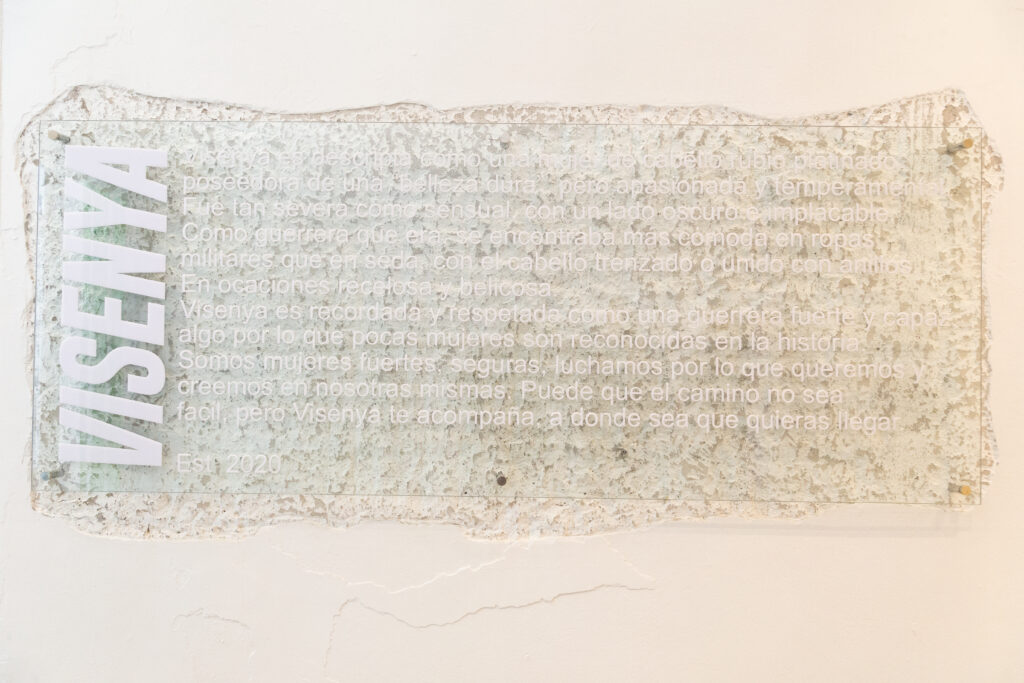 VISENYA
Visenya es descripta como una mujer de cabello rubio platinado,
poseedora de una belleza dura, pero apasionada y temperamental.
Fue tan severa como sensual, con un lado oscuro e implacable.
Como guerrera que era, se encontraba mas comoda en ropas
militares que en sedas con el cabello trenzado o unido con anillos.
En ocaciones recelosa y belicosa.
Visenya es recordada y respetada como una guerrera fuerte y capaz,
algo por lo que pocas mujeres son reconocidas en la historia.
Somos mujeres fuertes, seguras, luchamos por lo que queremos y
creemos en nosotras mismas. Puede que el camino no sea
facil, pero Visenya te acompaña, a donde sea que quieras llegar.
Est. 2020